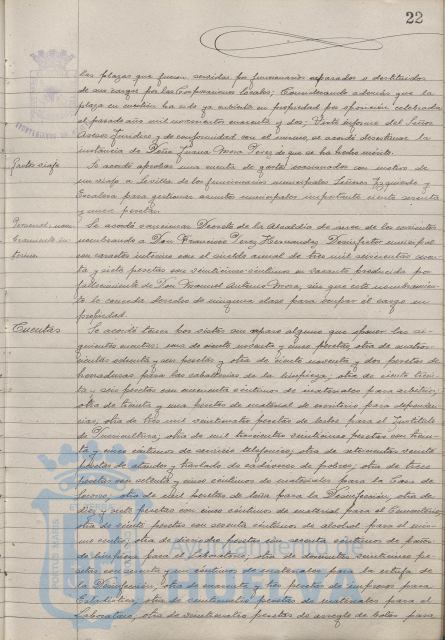 22
las plazas que fueron servidas por funcionarios separados o destituidos
de sus cargos por las Corporaciones Locales; Considerando además que la
plaza en cuestión ha sido ya cubierta en propiedad por oposición celebrada
el pasado año mil novecientos cuarenta y dos; Visto informe del Señor
Asesor Jurídico y de conformidad con el mismo, se acordó desestimar la
instancia de Doña Juana Mora Perez de que se ha hecho mérito.
Gastos viaje
Se acordó aprobar una cuenta de gastos ocasionados con motivo de
un viaje a Sevilla de los funcionarios municipales Señores Izquierdo y
Escalera para gestionar asuntos municipales importante ciento sesenta
y cinco pesetas.
Personal: nom
bramiento in
terino.
Se acordó sancionar Decreto de la Alcaldía de nueve de los corrientes
nombrando a Don Francisco Perez Hernandez Desinfector municipal
con carácter interino con el sueldo anual de tres mil seiscientas
y siete pesetas con veinticinco céntimos en vacante producida por
fallecimiento de Don Manuel Antonio Mora, sin que este nombramien-
to le conceda derecho de ninguna clase para ocupar el cargo en
propiedad.
Cuentas
Se acordó tener por vistas sin reparo alguno que oponer las si-
guientes cuentas: una de ciento noventa y cinco pesetas; otra de cuatro-
cientas ochenta y seis pesetas y otra de ciento noventa y dos pesetas de
herraduras para las caballerías de la limpieza; otra de ciento trein-
ta y seis pesetas con cincuenta céntimos de materiales para arbitrios;
otra de treinta y una pesetas de material de escritorio para dependen-
cias; otra de tres mil veinticuatro pesetas de leche para el Instituto
de Puericultura; otra de mil trescientas veinticinco pesetas con trein-
ta y cinco céntimos de servicio telefónico; otra de setecientas veinte
pesetas de ataudes y traslado de cadáveres de pobres; otra de trece
pesetas con setenta y cinco céntimos de materiales para la Casa de
Socorro; otra de mil pesetas de leña para la Desinfección; otra de
diez y siete pesetas con cinco céntimos de material para el
otra de veinte pesetas con sesenta céntimos de alcohol para el mis-
mo centro; otra de dieciocho pesetas con sesenta céntimos de
de limpieza para el Laboratorio; otra de doscientas veinticinco pe-
setas con setenta y un céntimos de materiales para la estufa de
la Desinfección; otra de cuarenta y tres pesetas de impresos para
Estadística; otra de veinticuatro pesetas de materiales para el
Laboratorio; otra de veinticuatro pesetas de arreglo de botas para
Ayuntamiento de
HUELVA